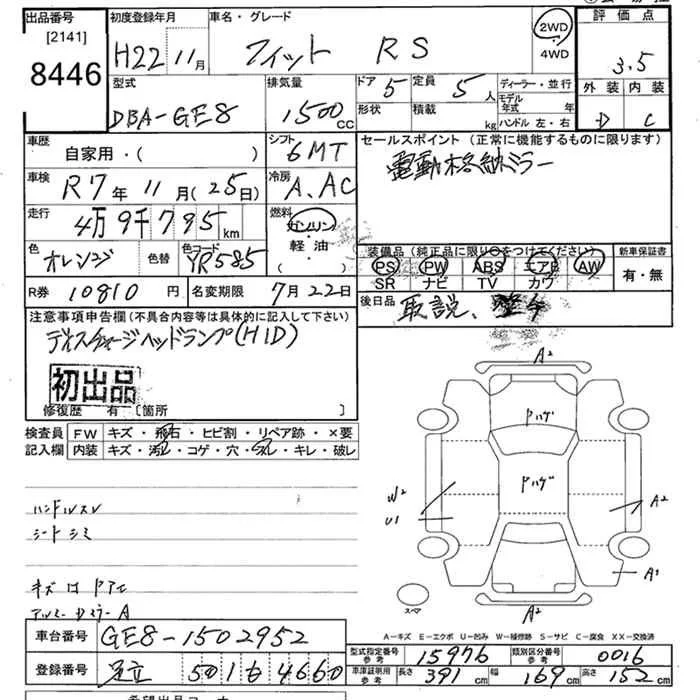 出品番号
[2141]
8446
初度登録年月
H22 11月
車名・グレード
フィット RS
2WD
4WD
評価点
3.5
外装 内装
D C
型式
DBA-GE8
排気量
1500 CC
ドア 5
形状
定員 5人
積載 kg
ディーラー・並行
モデル年式 年
ハンドル 左・右
車歴
自家用・( )
シフト
6MT
セールスポイント(正常に機能するものに限ります)
電動格納ミラー
車検
R7年11月(25日)
冷房
A.AC
走行
4万9千795km
燃料
ガソリン
軽・油
( )
色
オレンジ
色替
色コード
YR585
装備品(純正品に限り○をつけてください)
PS PW ABS エアB AW
SR ナビ TV カワ
新車保証書
有・無
R券 10810円
名変期限 7月22日
後日品
取説、
注意事項申告欄(不具合内容等は具体的に記入して下さい)
ディスチャージヘッドランプ(HID)
初出品
修復歴 有 〔箇所 〕
検査員記入欄
FW キズ・飛石・ヒビ割・リペア跡・×要
内装 キズ・汚レ・コゲ・穴・スレ・キレ・破レ
ハンドルスレ
シートシミ
A2
ドハゲ
ドハゲ
W2
U1
A2
A1
A2
スペア
A-キズ E-エクボ U-凹み W-補修跡 S-サビ C-腐食 XX-交換済
車台番号
GE8-1502952
登録番号
足立 501 も 4660
型式指定番号 参考
15976
類別区分番号 参考
0016
車庫証明用 参考
長さ 391cm
幅 169cm
高さ 152cm